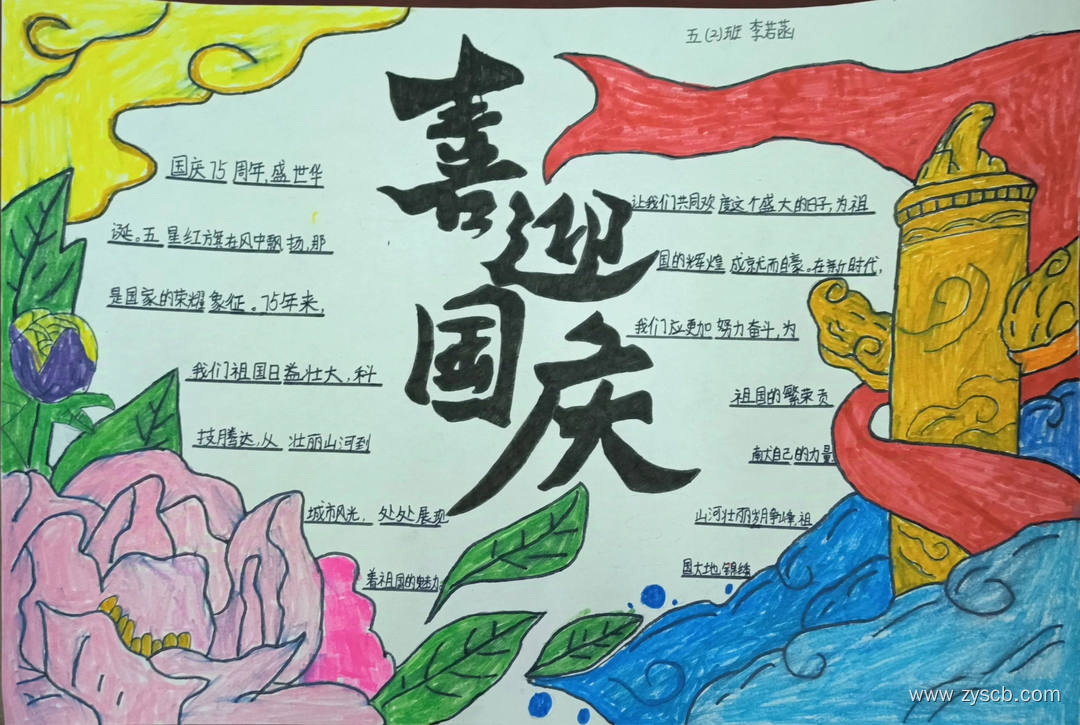 五(2)班 李若菡
喜迎国庆
国庆75周年,盛世华
诞。五星红旗在风中飘扬,那
是国家的荣耀象征。75年来,
我们祖国日益壮大,科
技腾达,从壮丽山河到
城市风光,处处展现
着祖国的魅力。
让我们共同欢度这个盛大的日子,为祖
国的辉煌成就而自豪。在新时代,
我们应更加努力奋斗,为
祖国的繁荣贡
献自己的力量
山河壮丽岁月峥嵘祖
国大地锦绣
www.zyscb.com